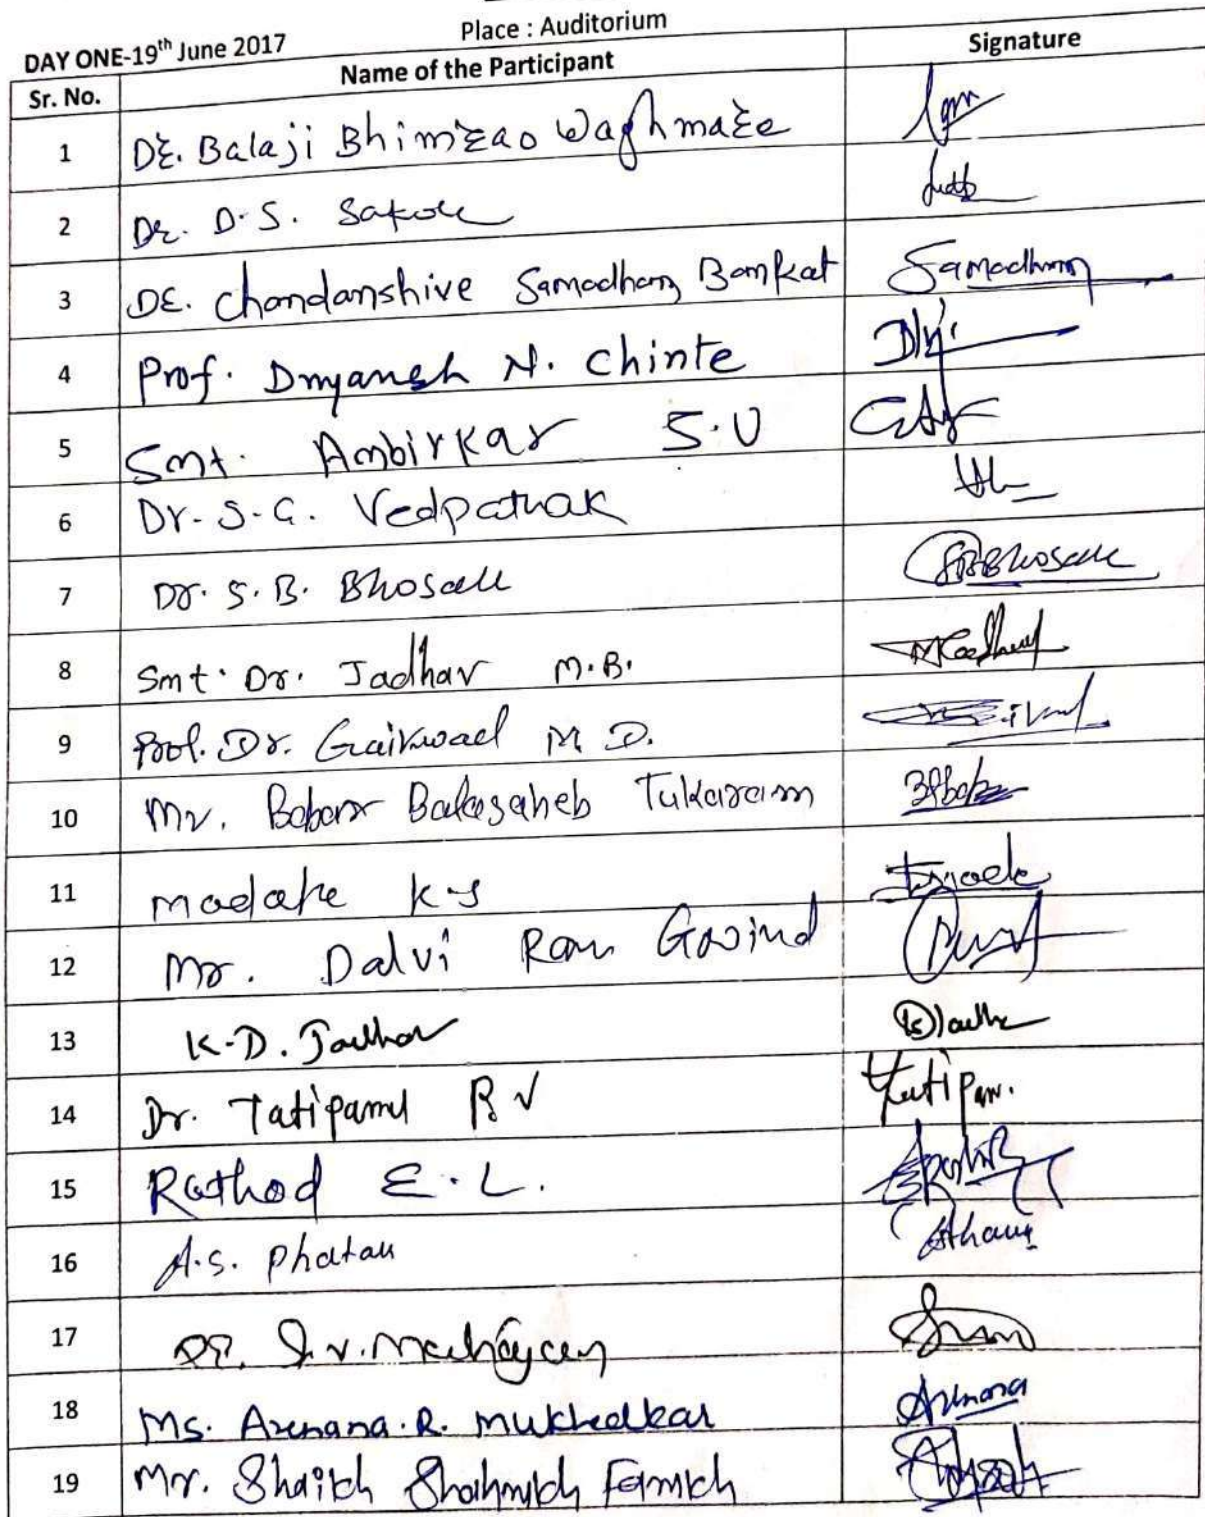 Place : Auditorium
DAY ONE-19th June 2017
Sr. No. Name of the Participant Signature
1 Dr. Balaji Bhimrao Waghmare
2 Dr. D.S. Sakole
3 Dr. Chandanshive Samadhan Bankat Samadhan
4 Prof. Dnyanesh N. Chinte
5 Smt. Ambirkar S.U
6 Dr. S.G. Vedpathak
7 Dr. S.B. Bhosale SBBhosale
8 Smt. Dr. Jadhav M.B.
9 Prof. Dr. Gaikwad M.D.
10 Mr. Babar Balasaheb Tukaram
11 Madake K S
12 Mr. Dalvi Ram Govind
13 K.D. Jadhav
14 Dr. Tatipamul R V
15 Rathod E.L.
16 A.S. Phatak
17 Dr. S.V. Mahajan
18 Ms. Archana.R. Mukhedkar Archana
19 Mr. Shaikh